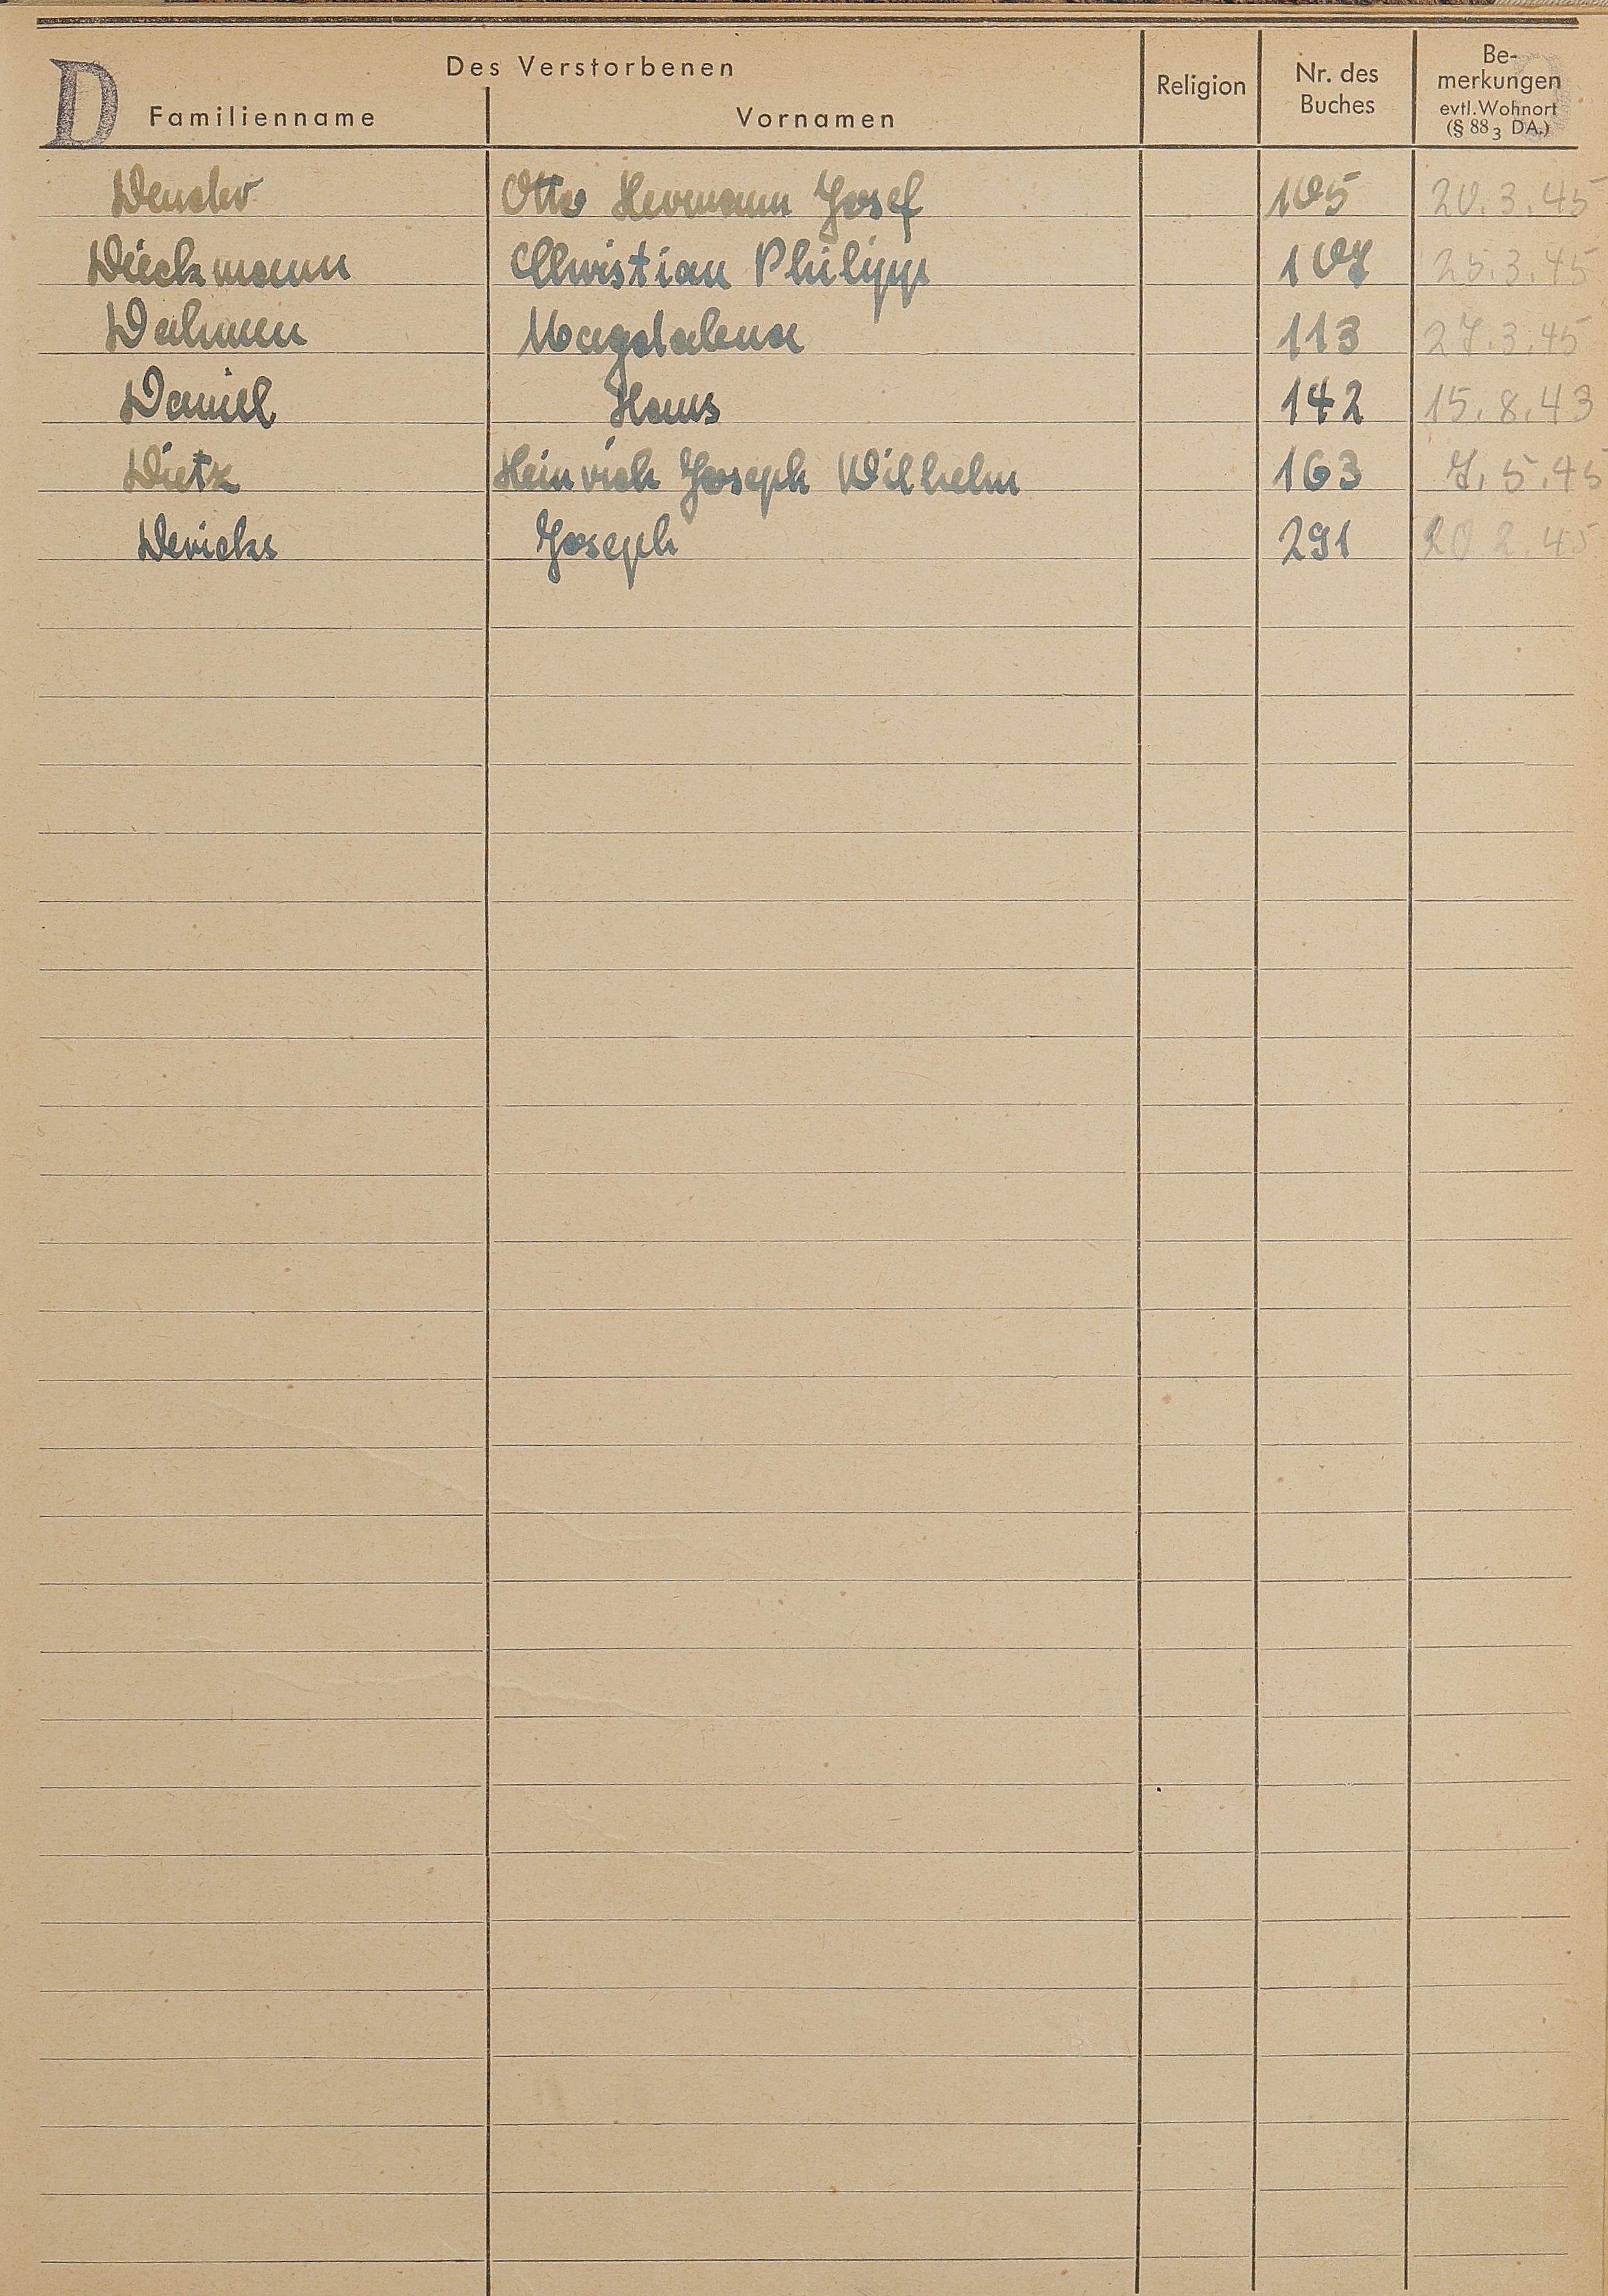 D
Des Verstorbenen
Familienname Vornamen Religion Nr. des Buches Be-merkungen evtl. Wohnort (§ 88 3 DA.)
Otto Hermann Josef 105 20.3.45
Dieckmann Christian Philipp 107 25.3.45
Dahmen Magdalena 113 27.3.45
Daniel Hans 142 15.8.43
Dietz Heinrich Joseph Wilhelm 163 7.5.45
Dericks Joseph 291 20.2.45